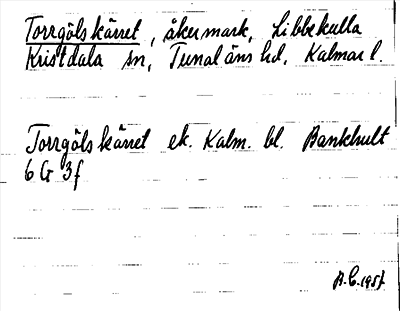 Torrgöls kärret, åkermark, Libbekulla
Kristdala sn, Tunaläns hd, Kalmar l.
Torrgöls kärret ek. Kalm. bl. Bankhult
6 G 3f
B.C. 1957